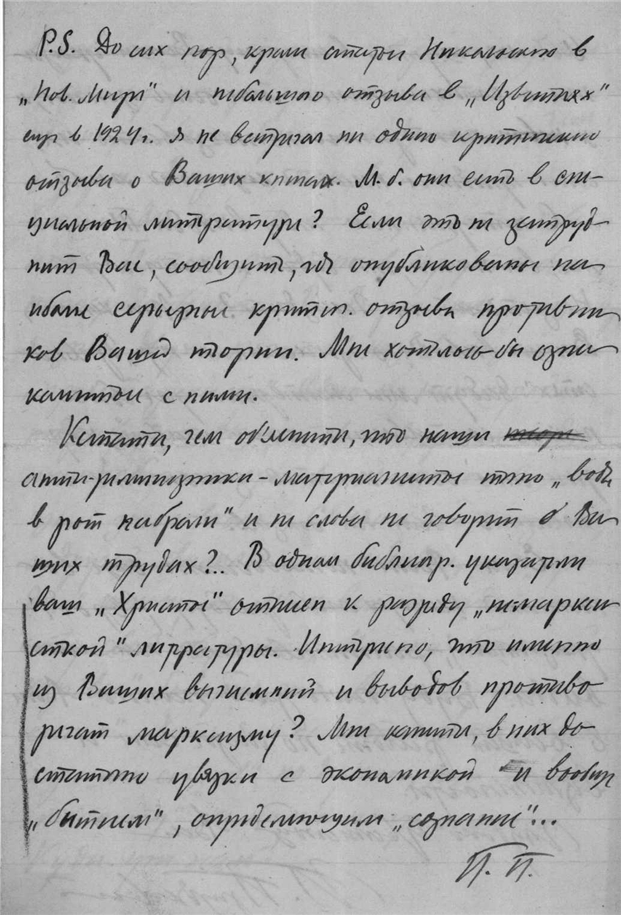 P.S. До сих пор, кроме статьи Никольского в
„Нов. Мире" и небольшого отзыва в „Известиях"
еще в 1924 г. я не встречал ни одного критического
отзыва о Ваших книгах. М.б. они есть в спе-
циальной литературе? Если это не затруд-
нит Вас, сообщите, где опубликованы на-
иболее серьезные критич. отзывы противни-
ков Вашей теории. Мне хотелось бы озна-
комиться с ними.
Кстати, чем объяснить, что наши
анти-религиозники-материалисты точно „воды
в рот набрали" и ни слова не говорят о Ва-
ших трудах?.. В одном библиогр. указателе
ваш „Христос" отнесен к разряду „немаркси-
стской" литературы. Интересно, что именно
из Ваших вычислений и выводов противо-
речит марксизму? Мне кажется, в них до-
статочно увязки с экономикой и вообще
„бытием", определяющим „сознание"...
П. П.